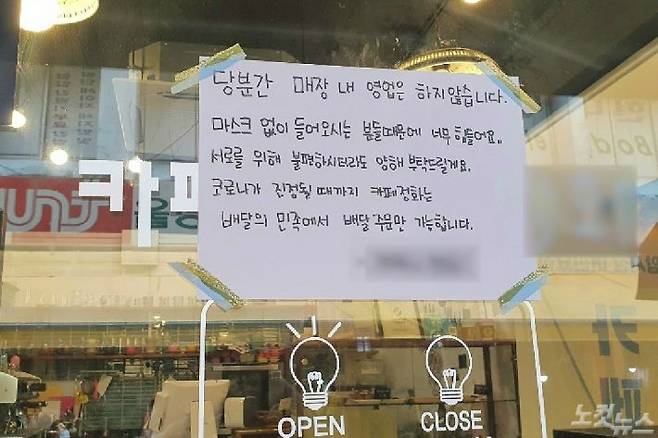 당분간 매장 내 영업은 하지않습니다.
마스크 없이 들어오시는 분들때문에 너무 힘들어요..
서로를 위해 불편하시더라도 양해 부탁드릴게요.
코로나가 진정될 때까지 카페정화는
배달의 민족에서 배달주문만 가능합니다.
카페
OPEN
CLOSE
카
페
노컷뉴스